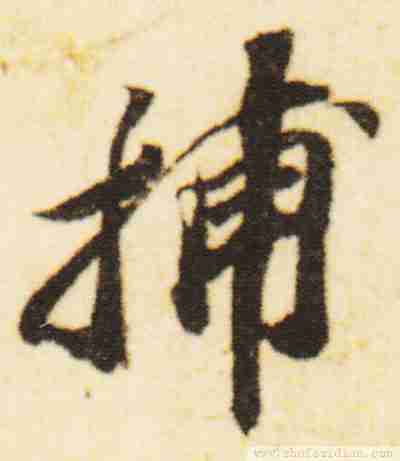 捕
www.shufazidian.com